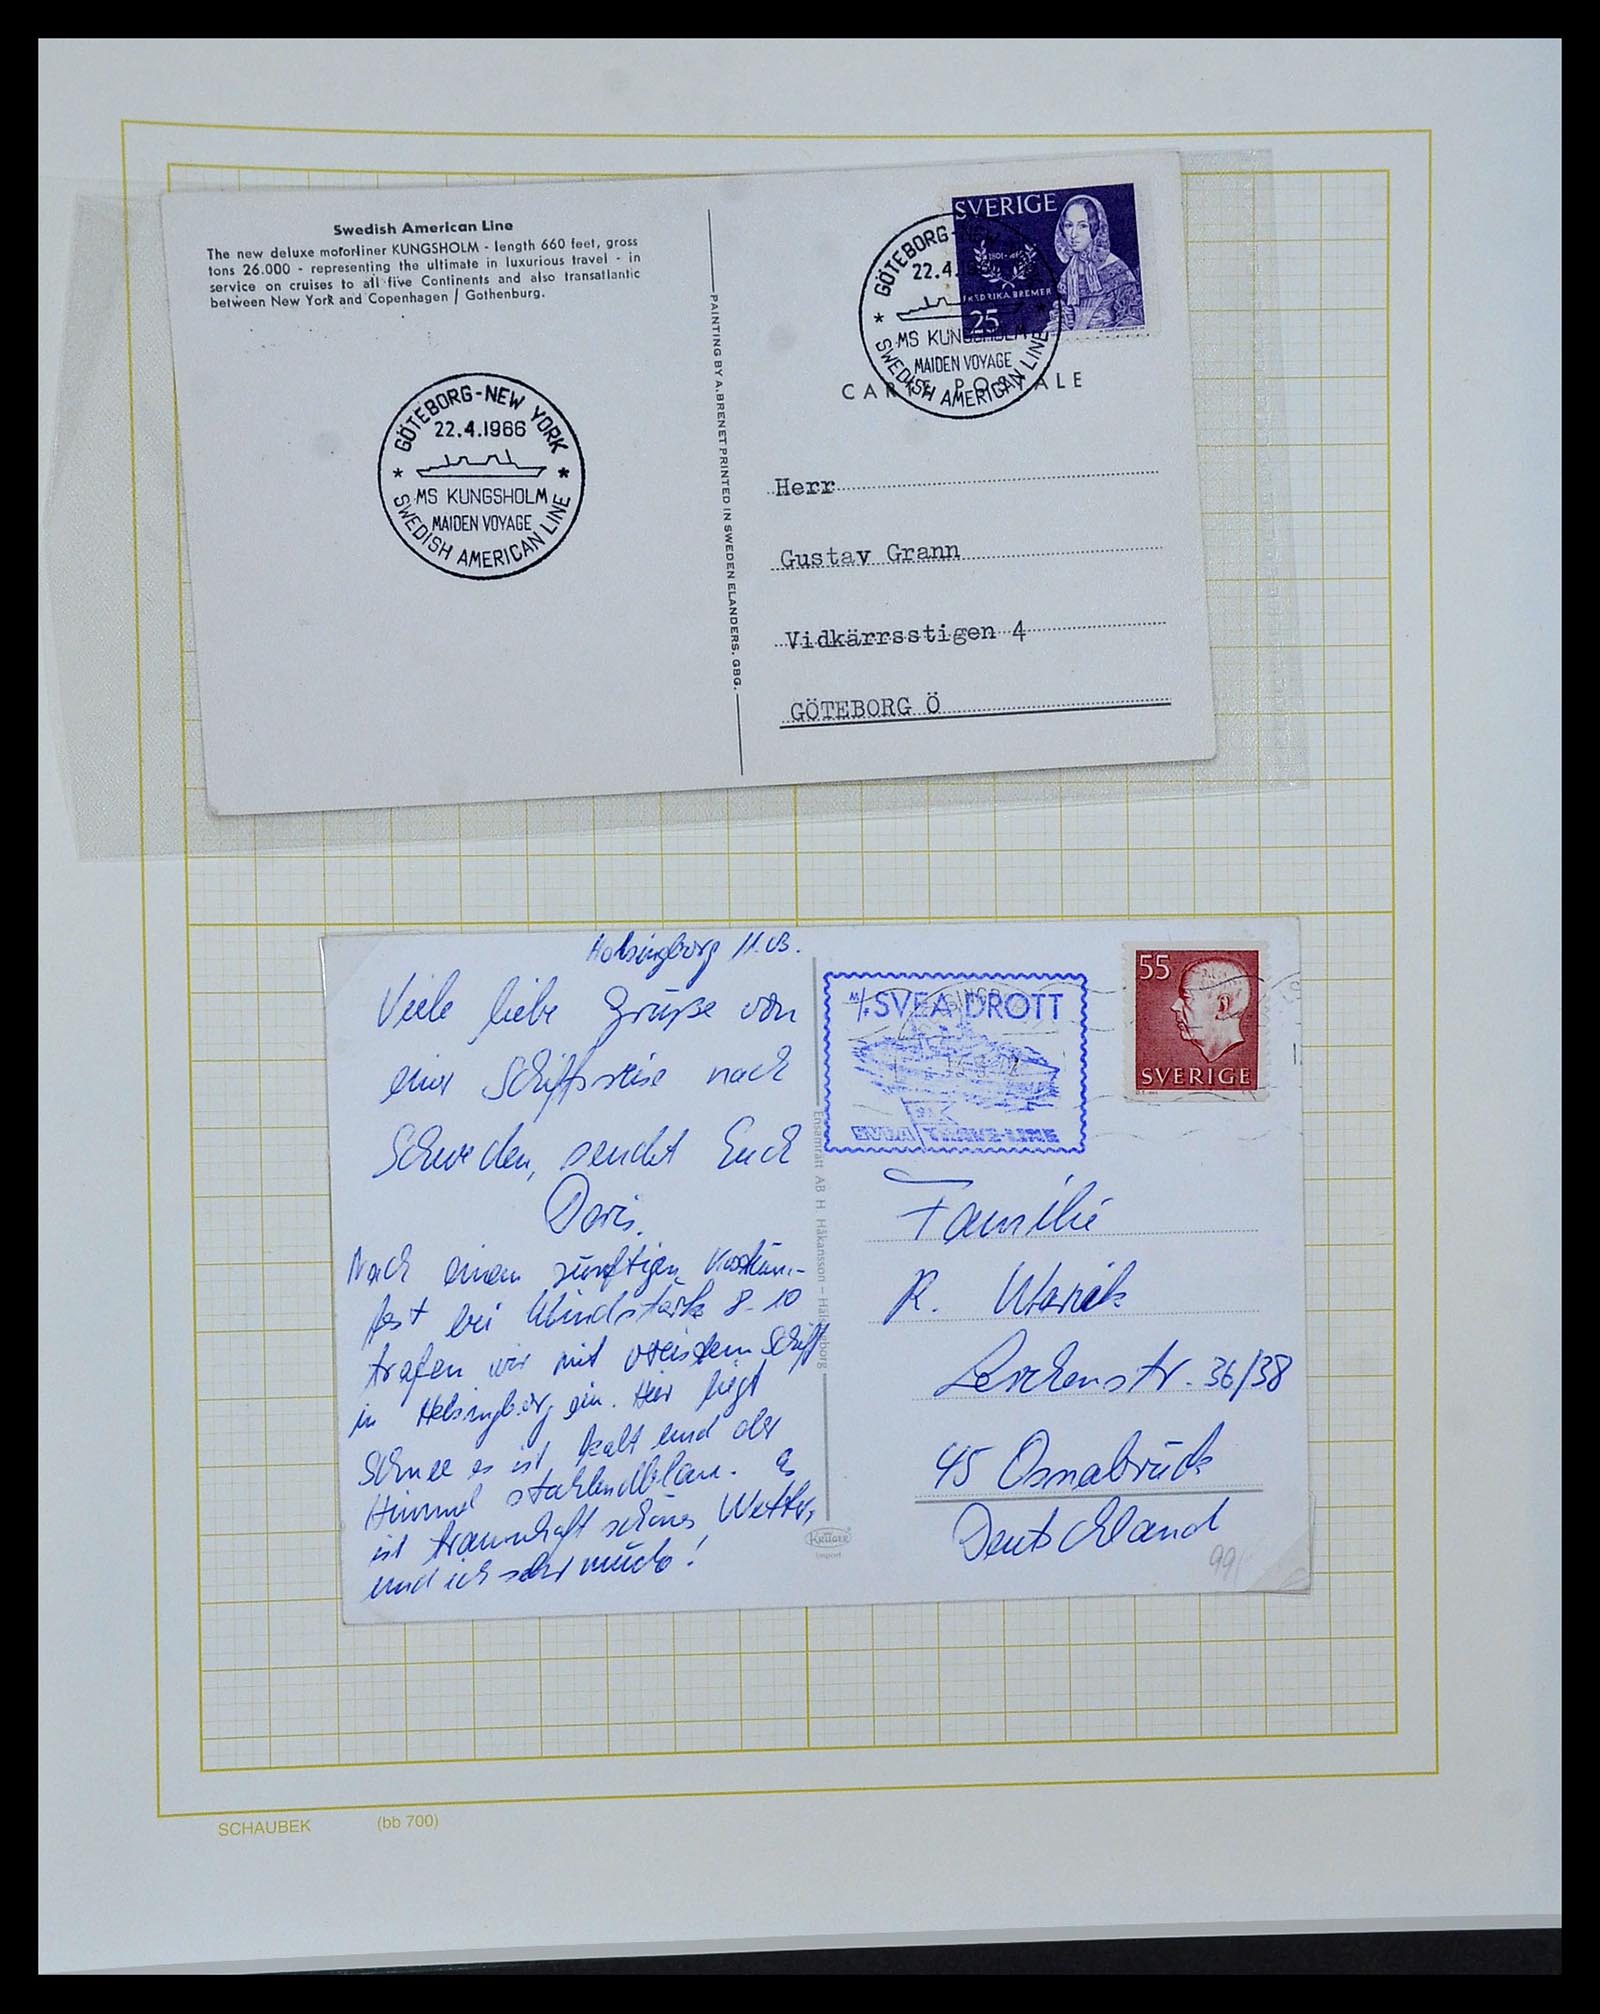 Swedish American Line
The new deluxe motorliner KUNGSHOLM - length 660 feet, gross
tons 26.000 - representing the ultimate in luxurious travel - in
service on cruises to all five Continents and also transatlantic
between New York and Copenhagen / Gothenburg.
GÖTEBORG-NEW YORK
22.4.1966
* *
MS KUNGSHOLM
MAIDEN VOYAGE
SWEDISH AMERICAN LINE
PAINTING BY A.BRENET PRINTED IN SWEDEN ELANDERS. GBG.
SVERIGE
1801-1865
FREDRIKA BREMER
25
GÖTEBORG-NEW
22.4.
* *
MS KUNGSHOLM
MAIDEN VOYAGE
SWEDISH AMERICAN LINE
CARTE POSTALE
Herr
Gustav Grann
Vidkärrsstigen 4
GÖTEBORG Ö
Helsingborg 11.03.
Viele liebe Grüße von
einer Schiffsreise nach
Schweden, sendet Euch
Doris.
Nach einem zünftigen
fest bei Windstärke 8-10
trafen wir mit Schiff
in Helsingborg ein. Hier liegt
Schnee es ist kalt und der
Himmel stahlendblau. Es
ist traumhaft schönes Wetter,
und ich sehr müde!
M/S SVEA DROTT
SVEA TRAVE-LINE
55
SVERIGE
Ensamrätt AB H Håkansson – Hälsingborg
KRÜGER
Import
Familie
K.
Lerchenstr. 36/38
45 Osnabrück
Deutschland
99
SCHAUBEK (bb 700)